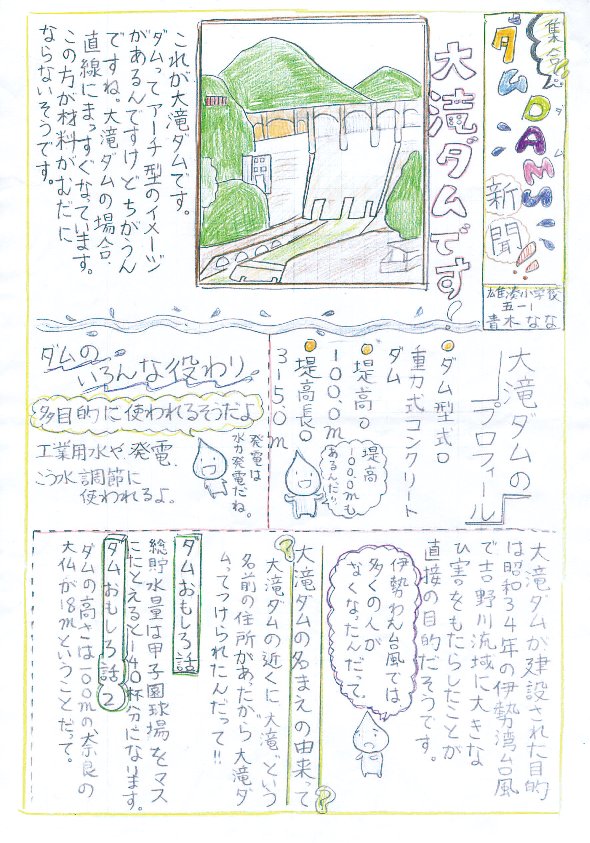 集合
ダム
ダム
DAMS
新聞!!
雄湊小学校
五一一
青木なな
大滝ダムです!
これが大滝ダムです。
ダムってアーチ型のイメージ
があるんですけどちがうん
ですね。大滝ダムの場合、
直線にまっすぐなっています。
この方が材料がむだに
ならないそうです。
大滝ダムの
プロフィール
ダム型式。
重力式コンクリート
ダム
堤高。
100.0m
堤高長。
315.0m
堤高
100mも
あるんだ!!
ダムの
いろんな役わり
多目的に使われるそうだよ
工業用水や発電、
こう水調節に
使われるよ。
発電は
水力発電だね。
大滝ダムが建設された目的
は昭和34年の伊勢湾台風
で吉野川流域に大きな
ひ害をもたらしたことが
直接の目的だそうです。
伊勢わん台風では
多くの人が
なくなったんだって。
?大滝ダムの名まえの由来って?
大滝ダムの近くに大滝という
名前の住所があたから大滝ダ
ムってつけられたんだって!!
ダムおもしろ話
総貯水量は甲子園球場をマス
にたとえると140杯分になります。
ダムおもしろ話2
ダムの高さは100mの奈良の
大仏が18mということだって。